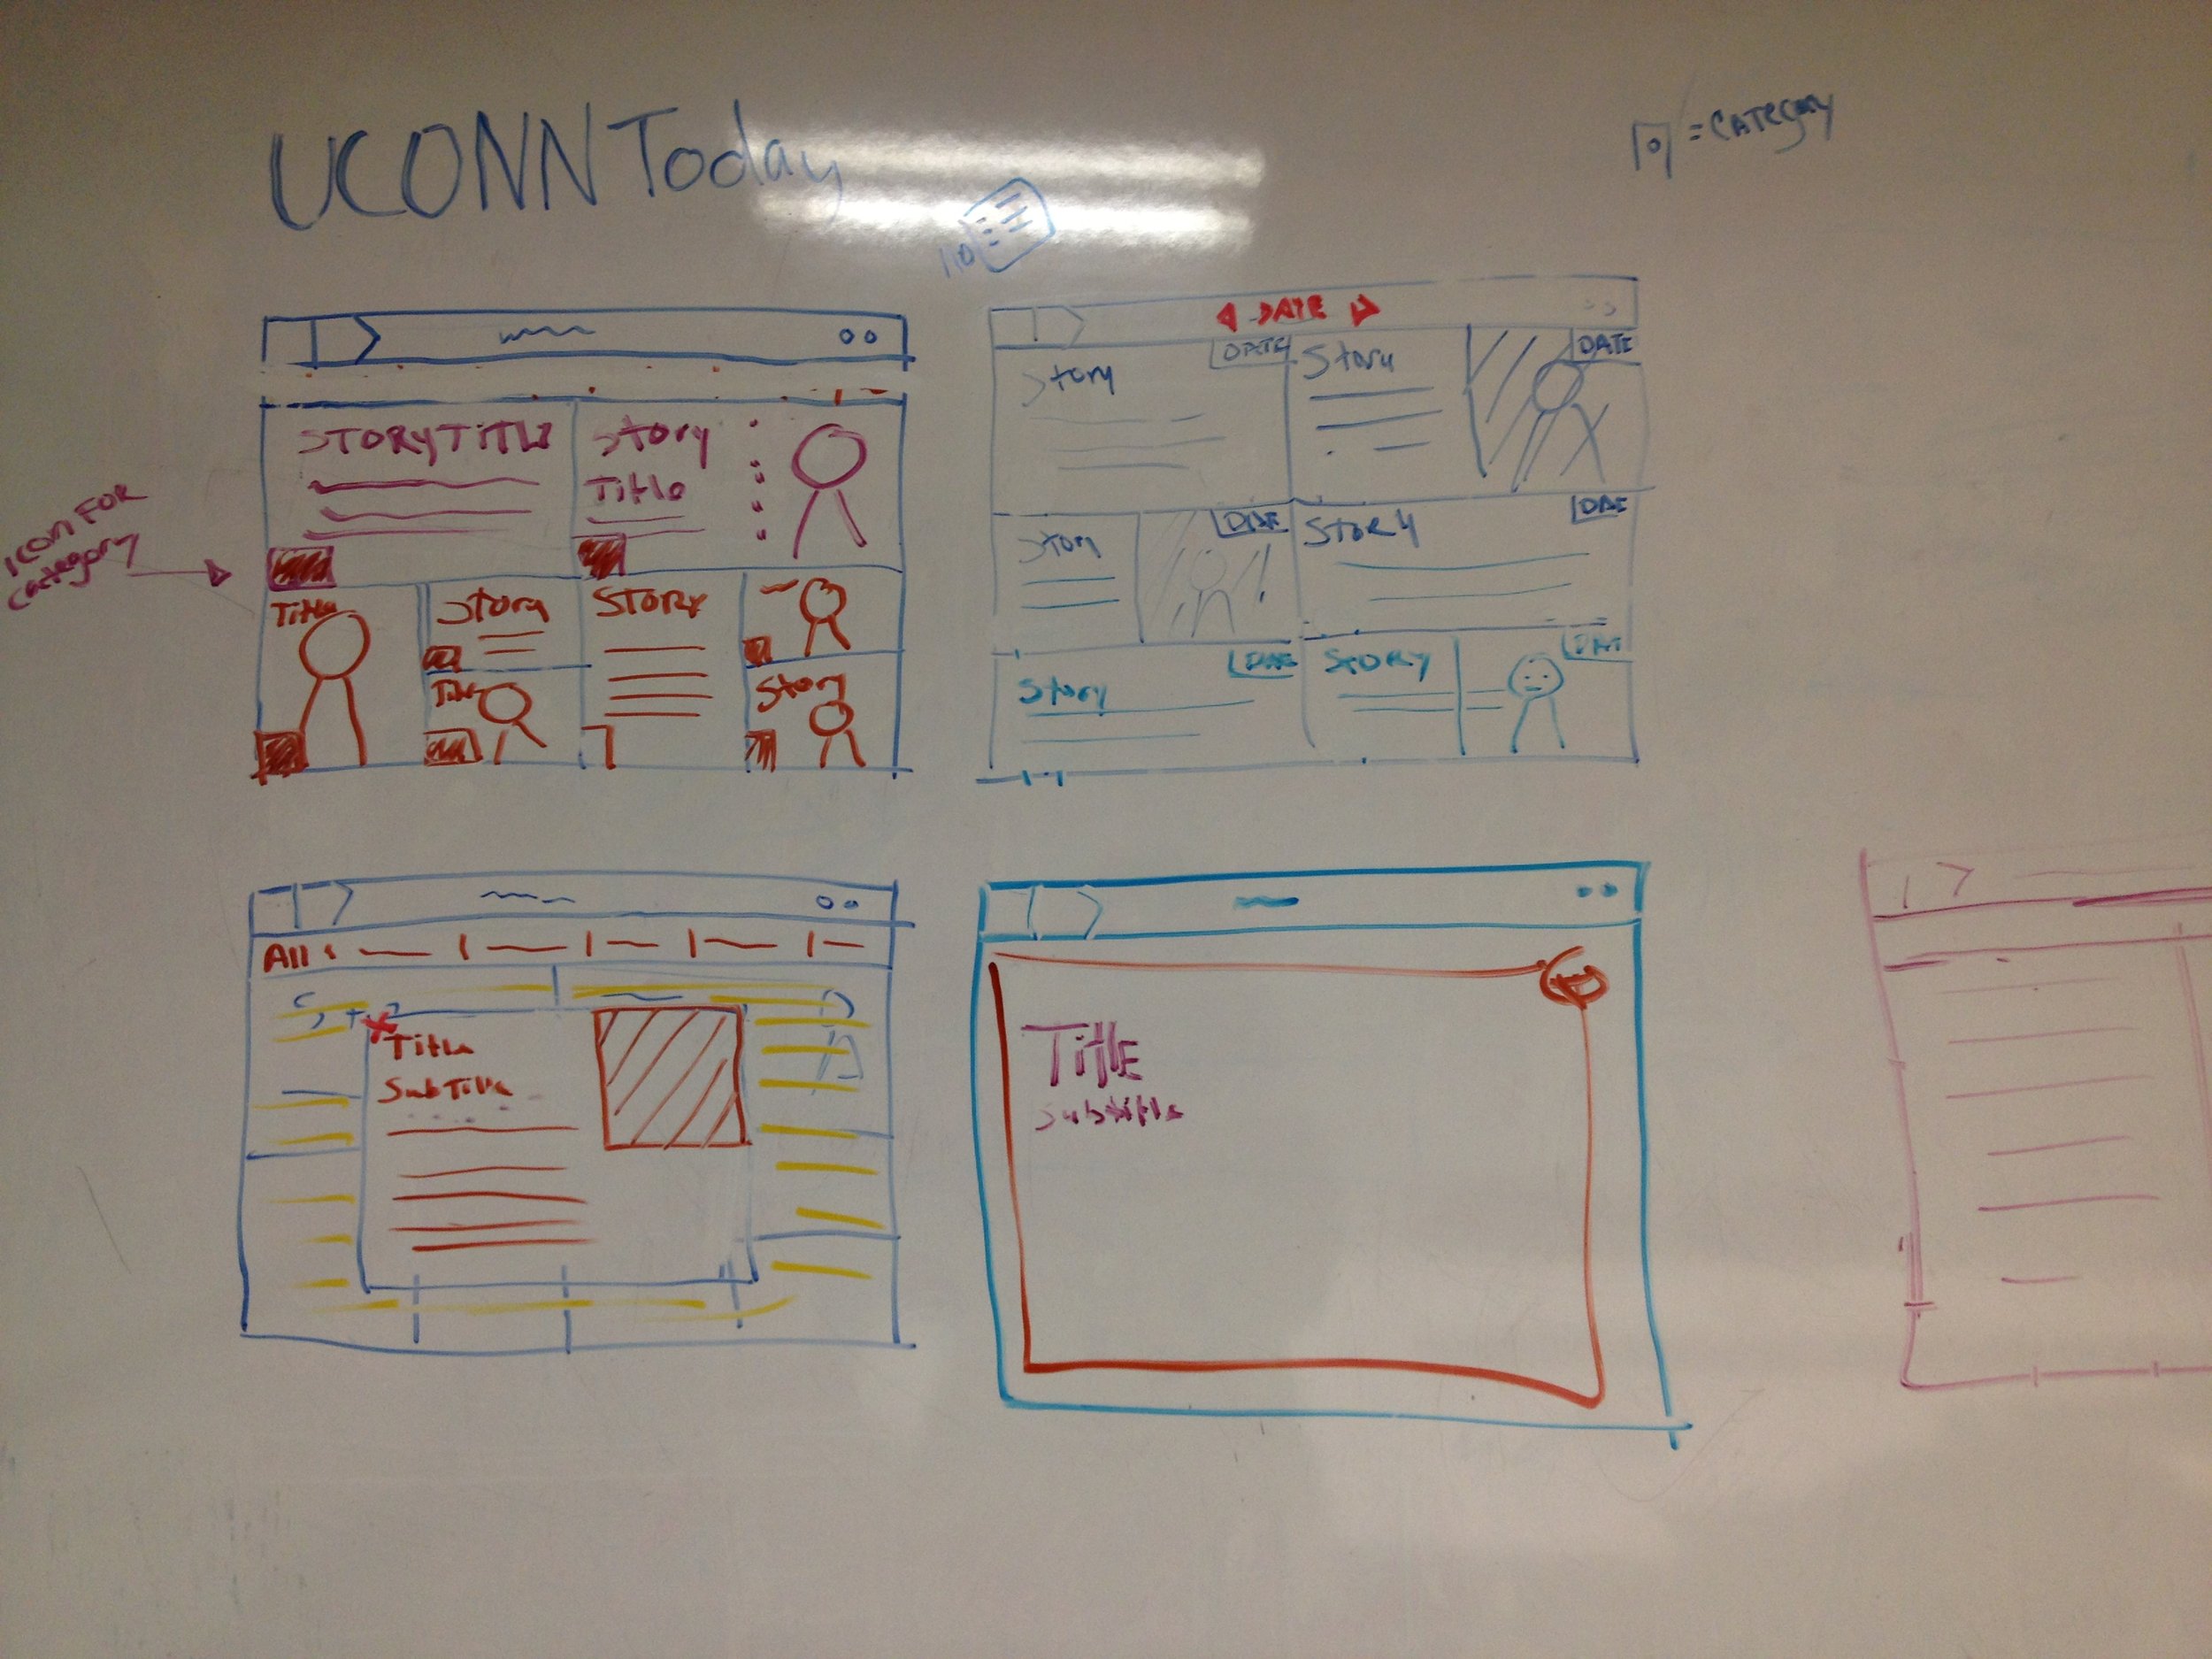 UCONN Today
= CATEGORY
ICON FOR
category
STORY TITLE
Story
Title
Title
Story
Title
STORY
Story
DATE
Story
DATE
Story
DATE
Story
DATE
STORY
DATE
Story
DATE
STORY
DATE
All
Title
SubTitle
Title
Subtitle